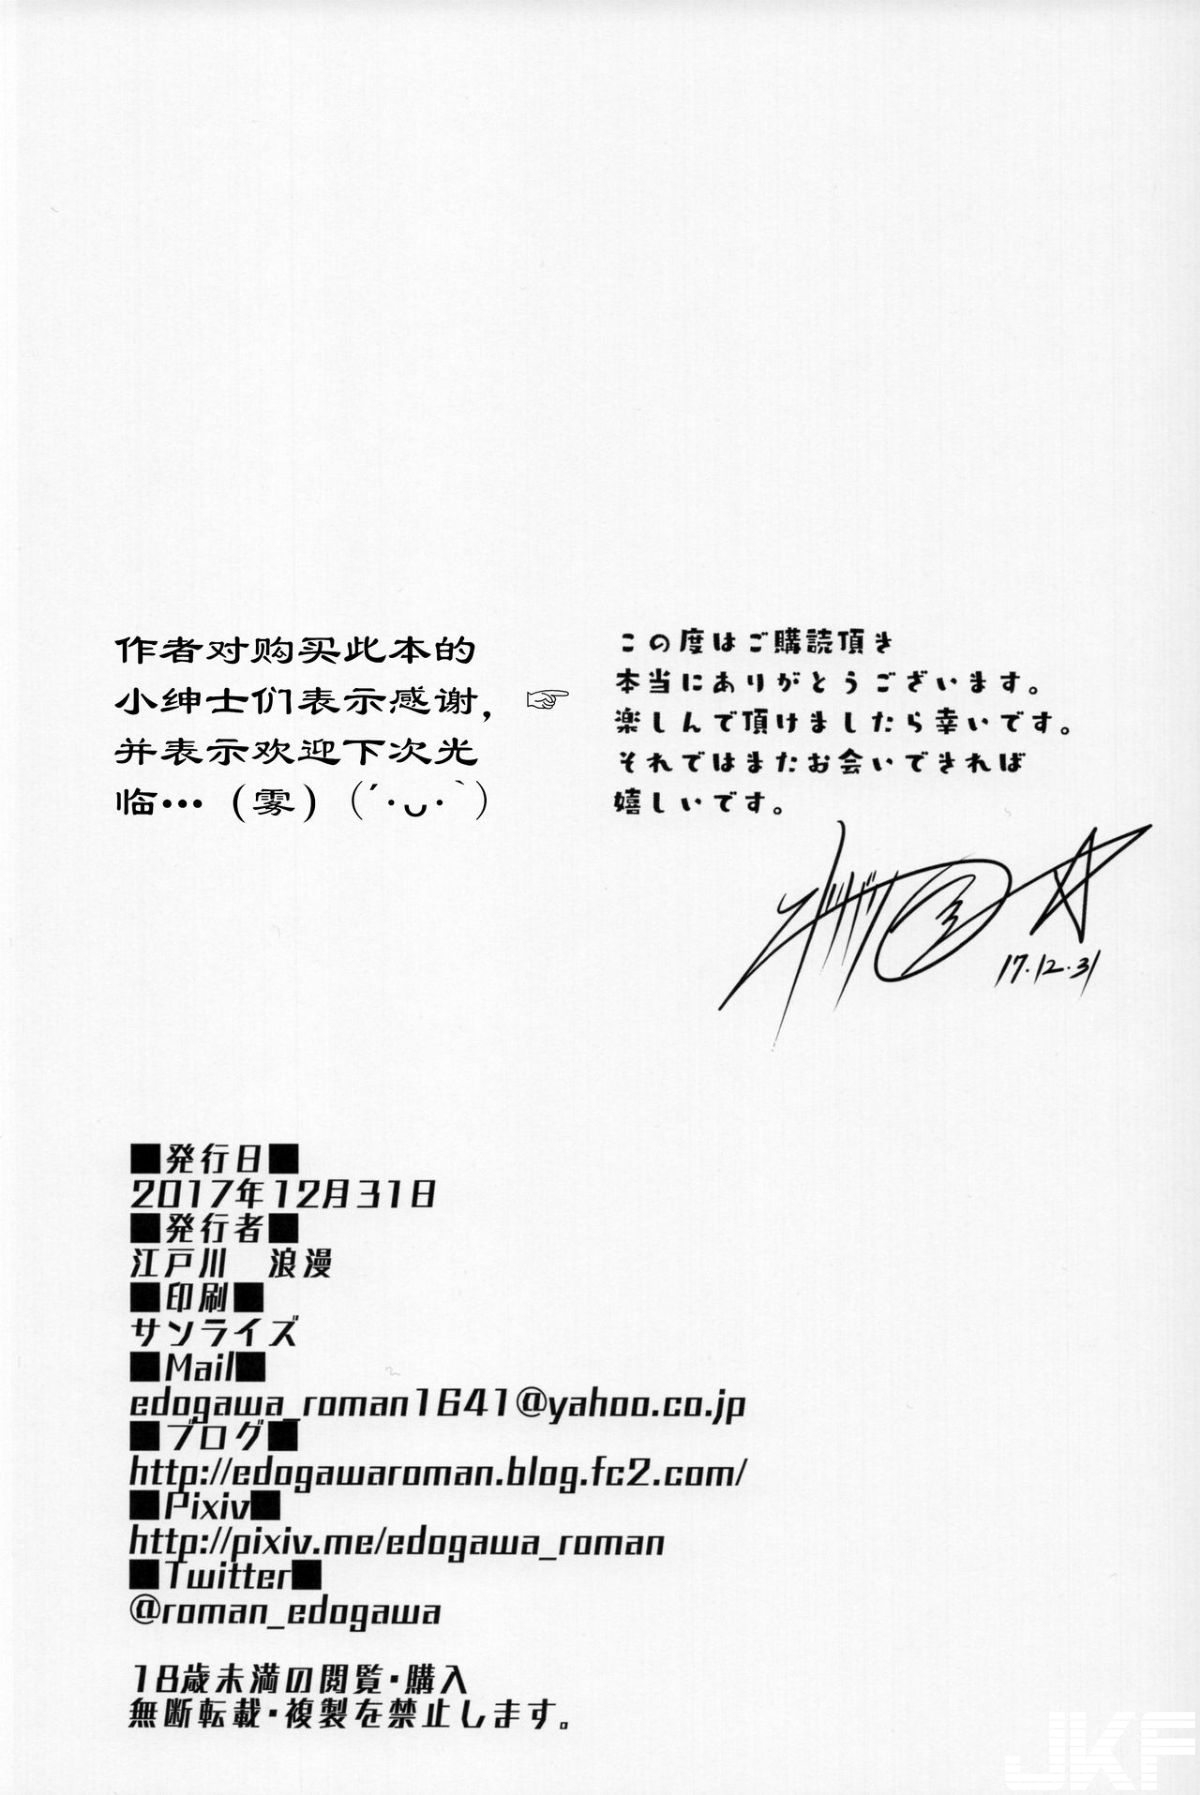 作者对购买此本的
小绅士们表示感谢，☞
并表示欢迎下次光
临…（雾）（´·ᴗ·`）
この度はご購読頂き
本当にありがとうございます。
楽しんで頂けましたら幸いです。
それではまたお会いできれば
嬉しいです。
17.12.31
■発行日■
2017年12月31日
■発行者■
江戸川　浪漫
■印刷■
サンライズ
■Mail■
edogawa_roman1641@yahoo.co.jp
■ブログ■
http://edogawaroman.blog.fc2.com/
■Pixiv■
http://pixiv.me/edogawa_roman
■Twitter■
@roman_edogawa
18歳未満の閲覧・購入
無断転載・複製を禁止します。
JKF